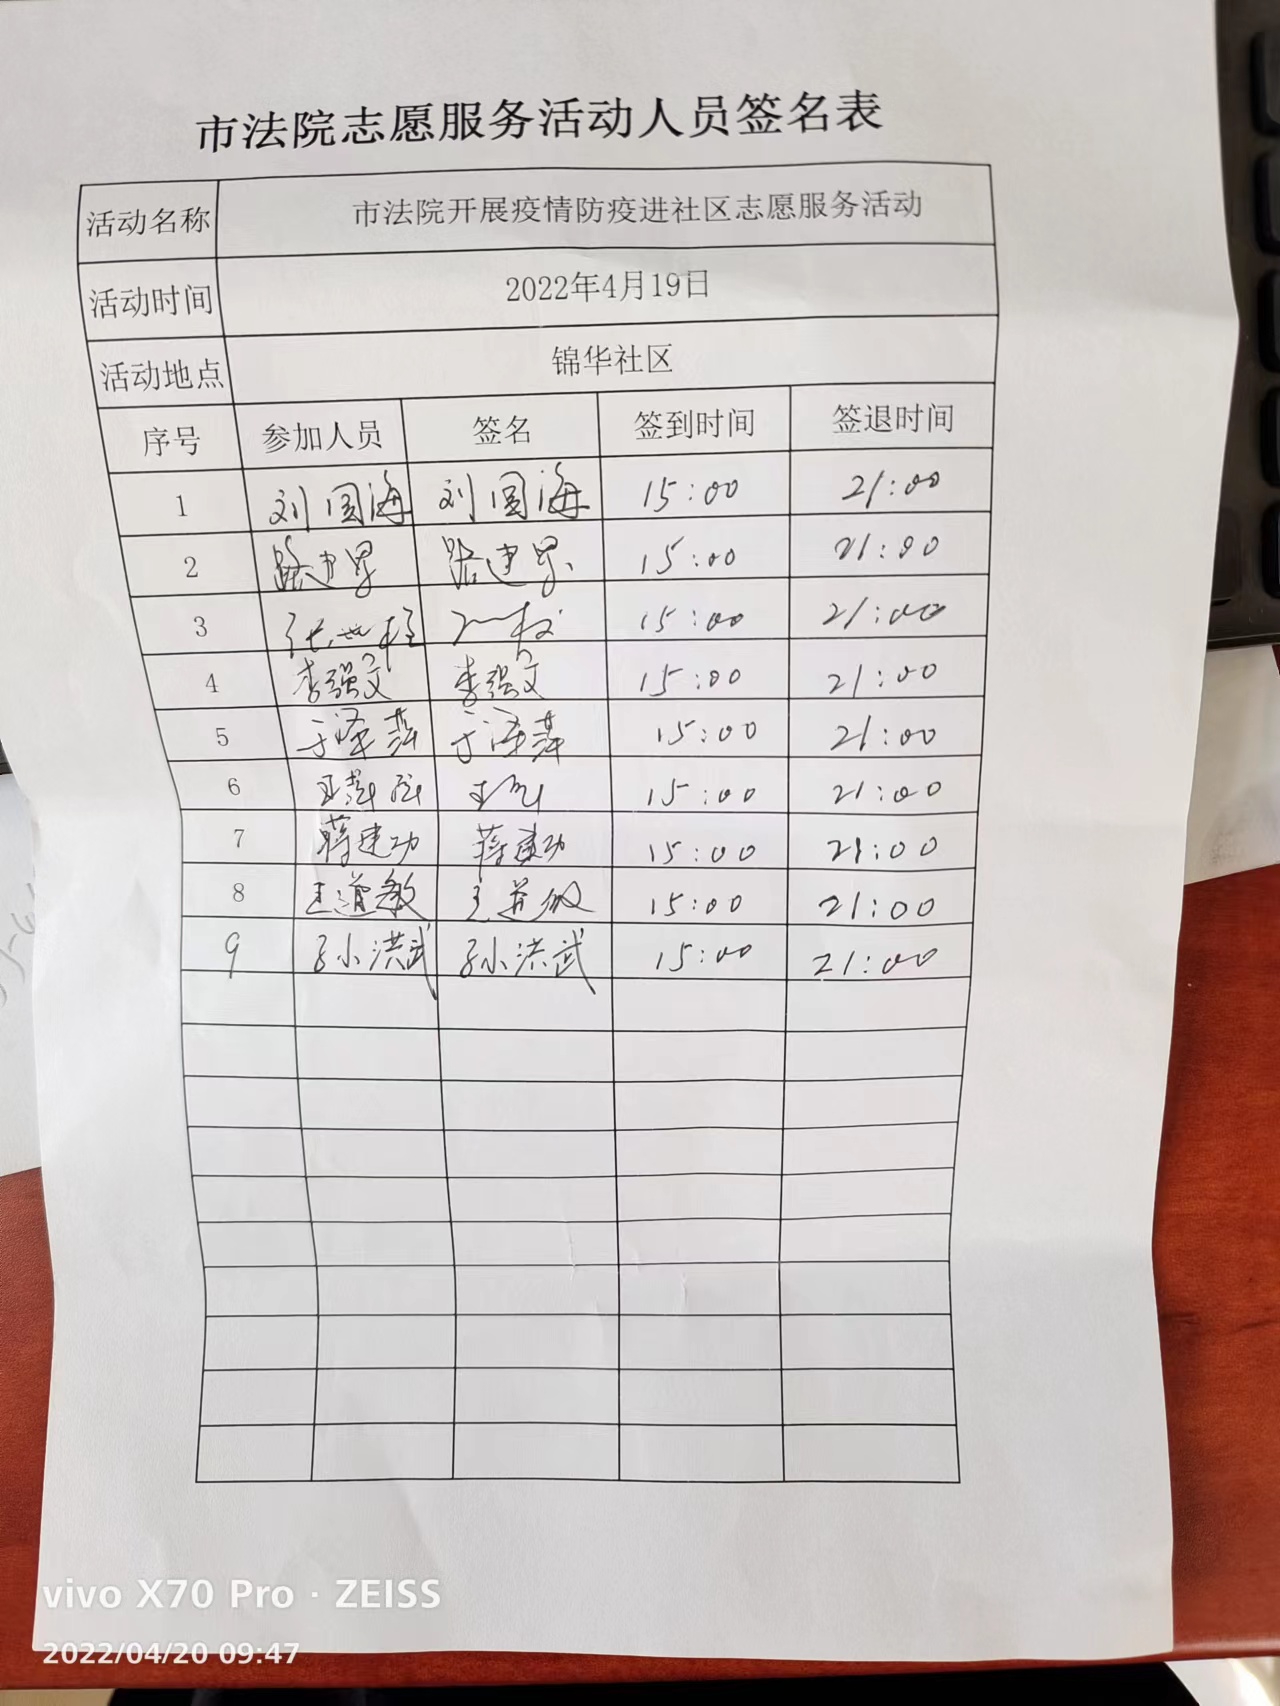 市法院志愿服务活动人员签名表
活动名称 市法院开展疫情防疫进社区志愿服务活动
活动时间 2022年4月19日
活动地点 锦华社区
序号 参加人员 签名 签到时间 签退时间
1 刘国海 刘国海 15:00 21:00
2 路建军 路建军 15:00 21:00
3 15:00 21:00
4 李强文 李强文 15:00 21:00
5 于泽萍 于泽萍 15:00 21:00
6 15:00 21:00
7 蒋建功 蒋建功 15:00 21:00
8 王道敏 王道敏 15:00 21:00
9 孙洪武 孙洪武 15:00 21:00
vivo X70 Pro · ZEISS
2022/04/20 09:47